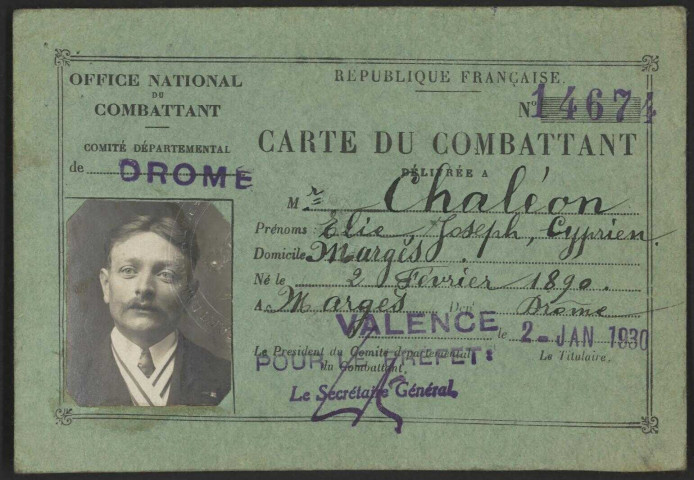 OFFICE NATIONAL
DU
COMBATTANT
COMITÉ DÉPARTEMENTAL
de DROME
REPUBLIQUE FRANÇAISE.
N° 14674
CARTE DU COMBATTANT
DÉLIVRÉE A
Mr Chaléon
Prénoms Elie, Joseph, Cyprien.
Domicile Margès.
Né le 2 Février 1890.
A Margès Dept Drôme
VALENCE le 2 - JAN 1930
Le Président du Comité départemental
du Combattant,
Le Titulaire,
POUR LE PREFET:
Le Secrétaire Général,